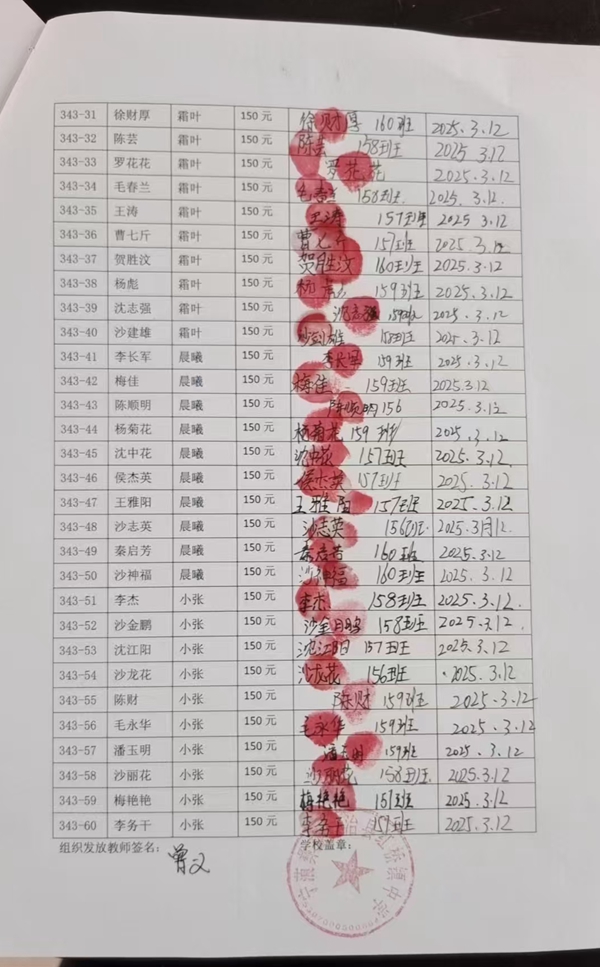 343-31 徐财厚 霜叶 150元 徐财厚 160班 2025.3.12
343-32 陈芸 霜叶 150元 陈芸 158班 2025 3.12
343-33 罗花花 霜叶 150元 罗花花 2025.3.12
343-34 毛春兰 霜叶 150元 毛春 158班 2025.3.12.
343-35 王涛 霜叶 150元 王涛 157班 2025 3.12
343-36 曹七斤 霜叶 150元 曹七斤 157班 2025 3.12
343-37 贺胜汶 霜叶 150元 贺胜汶 160班 2025.3.12
343-38 杨彪 霜叶 150元 杨彪 159班 2025.3.12
343-39 沈志强 霜叶 150元 沈志强 159班 2025.3.12
343-40 沙建雄 霜叶 150元 沙建雄 158班 2025.3.12
343-41 李长军 晨曦 150元 李长军 159班 2025.3.12
343-42 梅佳 晨曦 150元 梅佳 159班 2025.3.12
343-43 陈顺明 晨曦 150元 陈顺明 156 2025.3.12
343-44 杨菊花 晨曦 150元 杨菊花 159班 2025.3.12
343-45 沈中花 晨曦 150元 沈中花 157班 2025.3.12
343-46 侯杰英 晨曦 150元 侯杰英 157班 2025.3.12
343-47 王雅阳 晨曦 150元 王雅阳 157班 2025.3.12
343-48 沙志英 晨曦 150元 沙志英 156班 2025.3月12.
343-49 秦启芳 晨曦 150元 秦启芳 160班 2025.3.12
343-50 沙神福 晨曦 150元 沙神福 160班 2025.3.12
343-51 李杰 小张 150元 李杰 158班 2025.3.12.
343-52 沙金鹏 小张 150元 沙金鹏 158班 2025.3.12
343-53 沈江阳 小张 150元 沈江阳 157班 2025.3.12
343-54 沙龙花 小张 150元 沙龙花 156班 2025.3.12
343-55 陈财 小张 150元 陈财 159班 2025.3.12
343-56 毛永华 小张 150元 毛永华 159班 2025.3.12
343-57 潘玉明 小张 150元 潘玉明 159班 2025.3.12
343-58 沙丽花 小张 150元 沙丽花 158班 2025.3.12
343-59 梅艳艳 小张 150元 梅艳艳 157班 2025.3.12
343-60 李务干 小张 150元 李务干 157班 2025.3.12
组织发放教师签名: 学校盖章: